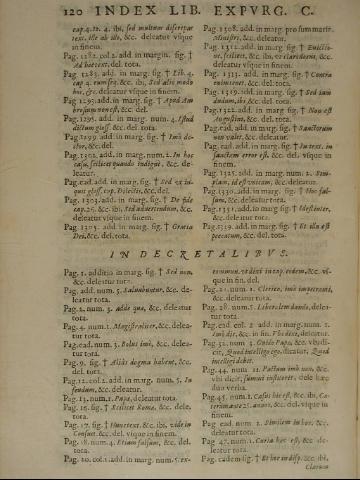 120 INDEX LIB. EXPVRG. C.
cap. 4. tt. 4. ibi, sed multum discrepat
text. iste ab illo, &c. deleatur vsque
in finem.
Pag. 1282. col. 2. add. in margin. sig. †
Ad hoc text. del. tota.
Pag. 1283. add. in marg. sig. † Lib. 4.
cap. 4. num. 9. &c. ibi, Sed alio modo
hic, &c. deleatur vsque in finem.
Pag. 1293. add. in marg. sig. † Apud Am
brosium non est, &c. del.
Pag. 1295. add. in marg. num. 4. Istud
dictum glos. &c. del. tota.
Pag. 1299. add. in marg. sig. † Imò de-
&c. del.
Pag. 1302. add. in marg. num. 1. In hoc
casu, scilicet quando indiget, &c. de-
leatur.
Pag. ead. add. in marg. sig. † Sed ex in-
quit glos. cap. &c. del.
Pag. 1303. add. in marg. sig. † De side
cap. 25. &c. ibi, Sed aduertendum, &c.
deleatur vsque in finem.
Pag. 1305. add. in marg. sig. † Gratia
Dei, &c. del. tota.
Pag. 1308. add. in marg. pro summariis.
Minister, &c. deleatur.
Pag. 1312. add. in marg. sig. †
scilicet, &c. ibi, &c. de-
leatur vsque in finem.
Pag. 1313. add. in marg. sig. † Contra
&c. del. tota.
Pag. 1319. add. in marg. sig. † Sed iam
&c. del. tota.
Pag. 1322. add. in marg. sig. † Non est
Augustini, &c. del. tota.
Pag. ead. add. in marg. sig. † Sanctorum
non valet, &c. deleatur.
Pag. ead. add. in marg. sig. † In text. in
sanctum error est, &c. del. vsque in
finem.
Pag. 1325. add. in marg. num. 1. Sim-
id est vnicam, deleatur.
Pag. 1330. add. in marg. sig. † Hoc fal-
sum, &c. deleatur tota.
Pag. 1331. add. in marg. sig. † Id est inter,
&c. deleatur tota.
Pag. 1339. add. in marg. sig. † Et illa est
peccatum, &c. del. tota.
IN DECRETALIBVS.
Pag. 1. additio in marg. sig. † Sed non,
&c. deleatur tota.
Pag. add. num. 5. Salambinetur, &c. de-
leatur tota.
Pag. 2. num. 3. adde quo, &c. deleatur
tota.
Pag. 4. num. 1. Magistraliter, &c. delea-
tur tota.
Pag. ead. num. 3. Bolus imò, &c. delea-
tur tota.
Pag. 9. sig. † Alias dogma habent, &c.
del. tota.
Pag. 12. col. 2. add. in marg. num. 5. In
feudum, &c. deleatur.
Pag. 13. num. 1. Papa, deleatur tota.
Pag. 15. sig. † Scilicet Roma, &c. dele.
tota.
Pag. 17. sig. † Hunc text. &c. ibi, vide in
Consuet. &c. del. vsque in finem.
Pag. 18. num. 4. Etiam falsum, &c. del.
tota.
Pag. 20. col. 1. add. in marg. num. 5. ex-
commun. et dixi in cap. eodem, &c. vs-
que in fin. del.
Pag. 21. num. 1. Clerico, imò impetranti,
&c. deleatur tota.
Pag. 28. num. 5. Liberalem dando, delea-
tur tota.
Pag. ead. col. 2. add. in marg. num. 2.
Imò dic, &c. in fin. Vide dixi, deleatur.
Pag. 32. num. 3. Guido Papa, &c. vbi di-
cit, Quod intelligo ego, dicatur, Quod
intelligi debet.
Pag. 44. num. 11. Pactum imò non, &c.
vbi dicit, sumui insisteret, dele hæc
duo verba.
Pag. 45. num. 1. Casus hic est, &c. ibi, Ca-
&c. del. vsque in
finem.
Pag. ead. num. 2. Similem in hoc, &c.
deleatur tota.
Pag. 47. num. 1. Curia hoc est, &c. de-
leatur tota.
Pag. eadem sig. † Et hoc in disp. &c. ibi,
Clarum